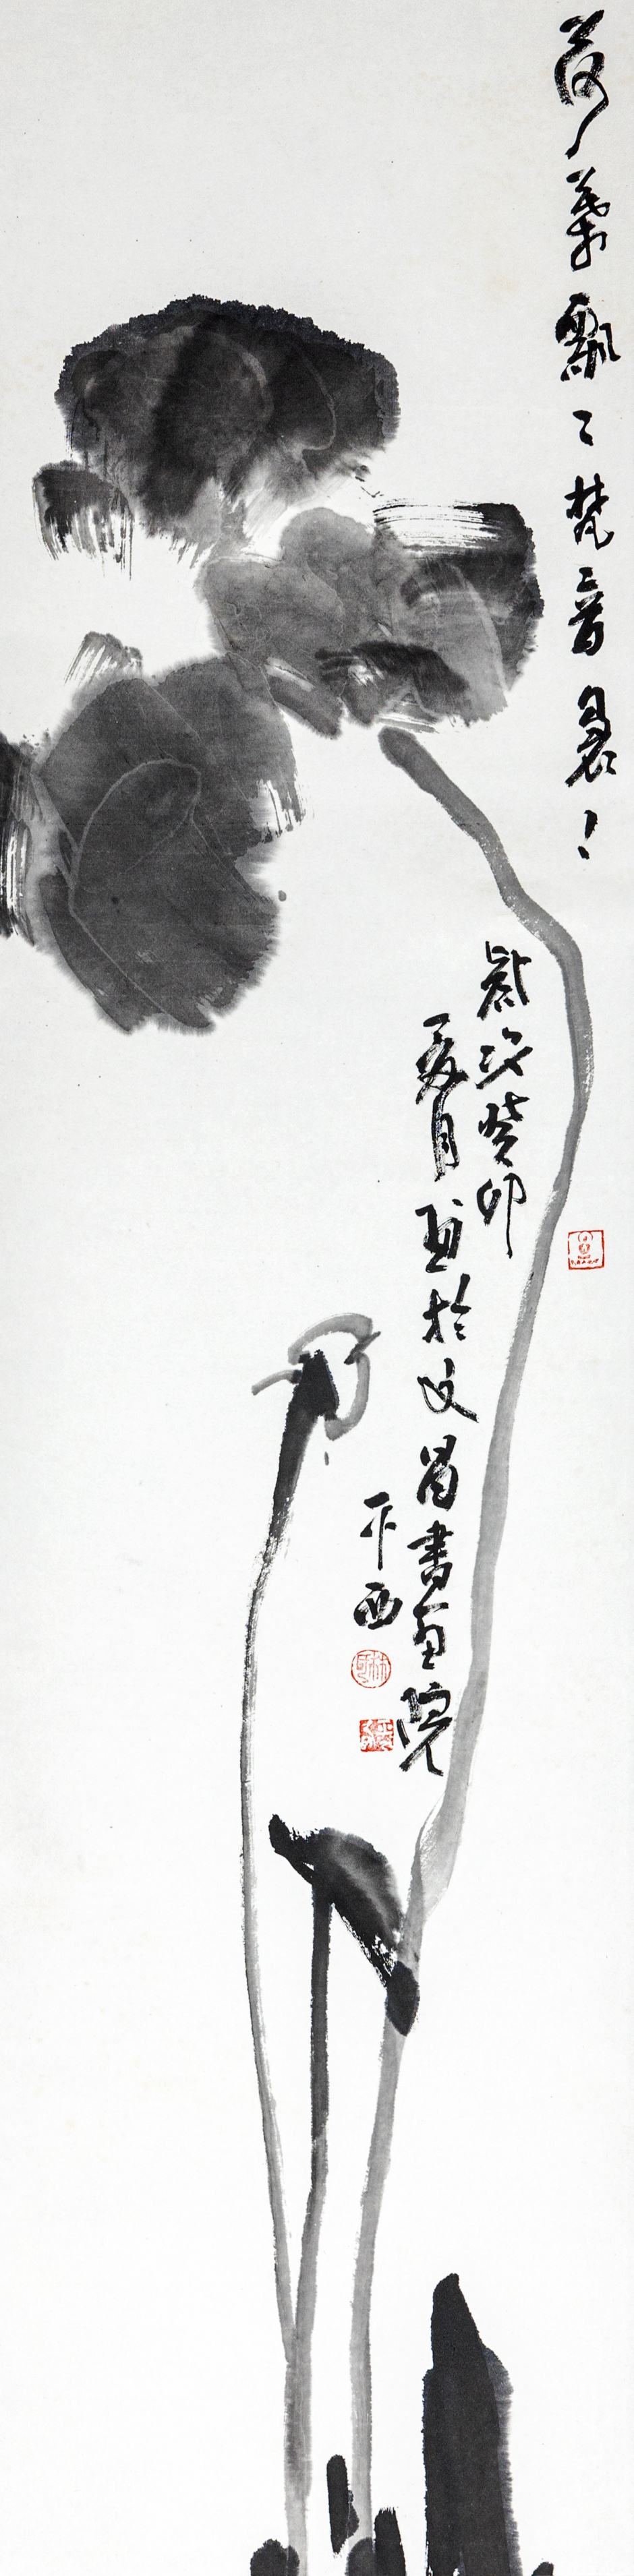 荷葉飘〻梵音裊！
歲次癸卯
夏月畫於文昌書画院
平西